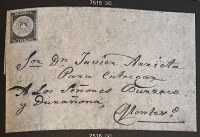 7515 DG
Son Dn Javier Arrieta
Para entregar
A los Señores Durraco
y Durañona,
Montevo.
7515 DG